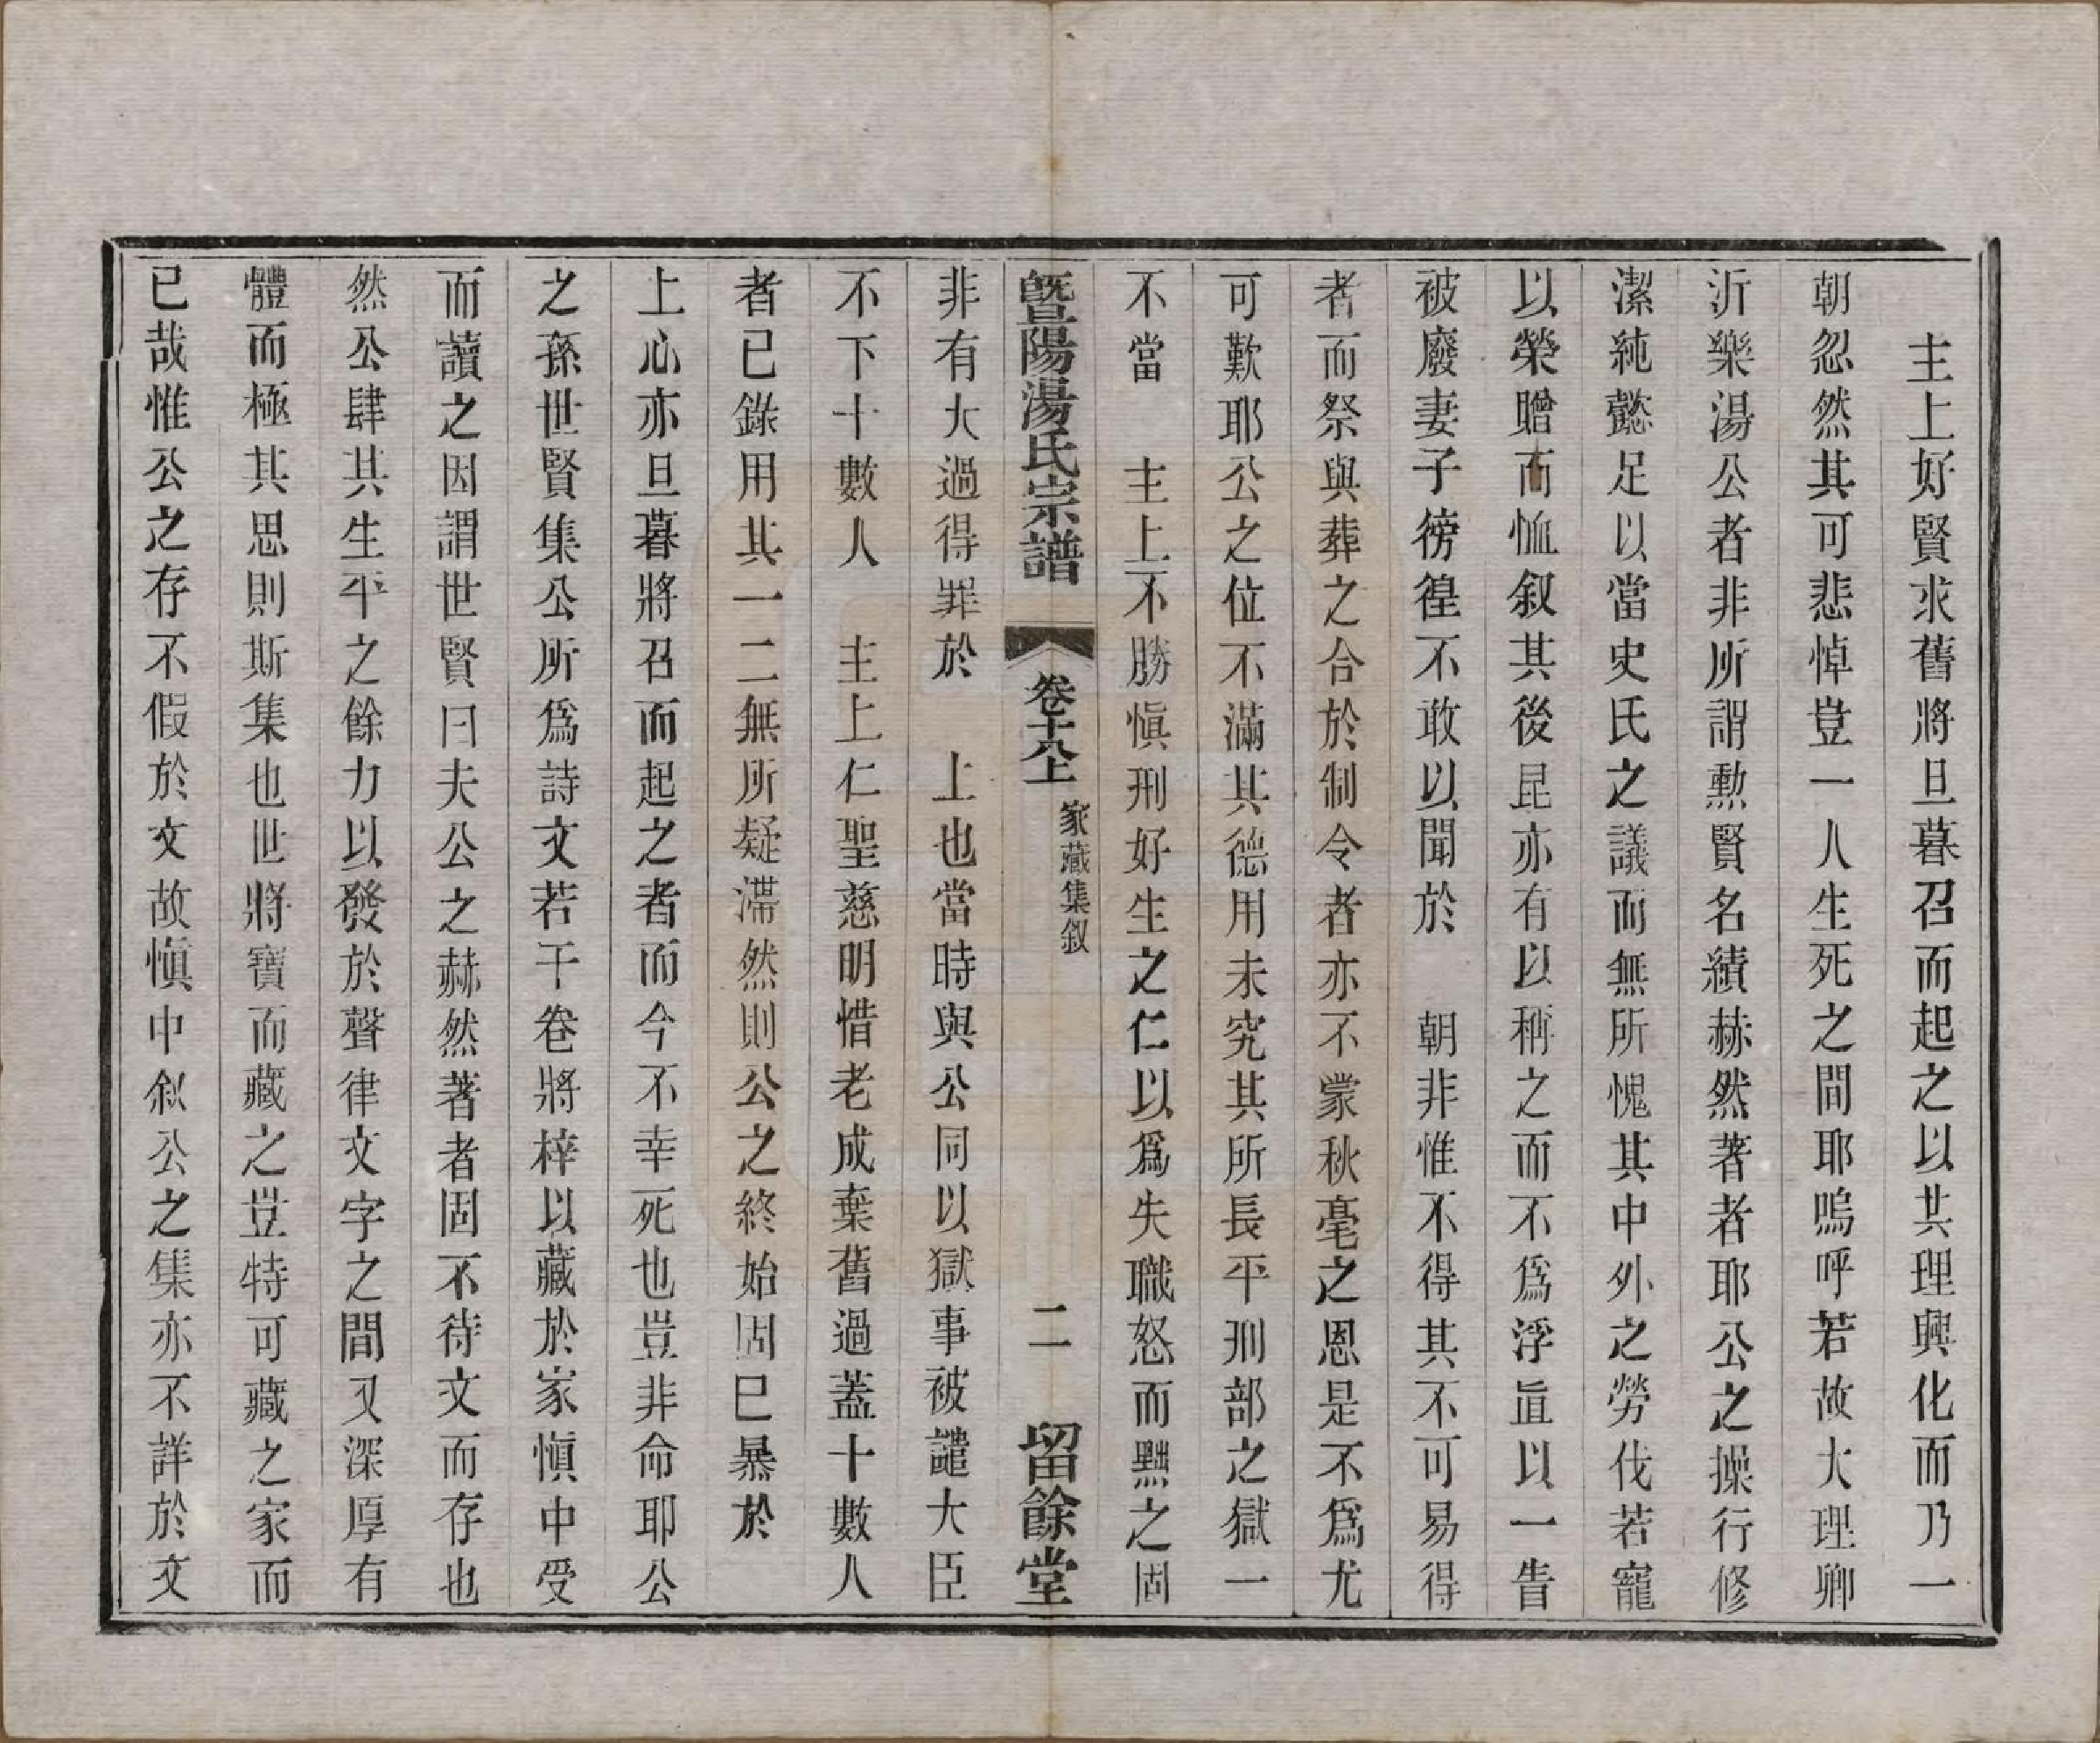 主上好賢求舊將旦暮召而起之以共理興化而乃一
朝忽然其可悲悼豈一人生死之間耶嗚呼若故大理卿
沂樂湯公者非所謂勲賢名績赫然著者耶公之操行修
潔純懿足以當史氏之議而無所愧其中外之勞伐若寵
以榮贈而恤叙其後昆亦有以稱之而不爲浮眞以一眚
被廢妻子徬徨不敢以聞於　朝非惟不得其不可易得
者而祭與葬之合於制令者亦不蒙秋毫之恩是不爲尤
可歎耶公之位不滿其德用未究其所長平刑部之獄一
不當　主上不勝愼刑好生之仁以爲失職怒而黜之固
暨陽湯氏宗譜　卷十八上　家藏集叙　二　留餘堂
非有大過得罪於　上也當時與公同以獄事被譴大臣
不下十數人　主上仁聖慈明惜老成棄舊過蓋十數人
者已錄用其一二無所疑滯然則公之終始固巳暴於
上心亦旦暮將召而起之者而今不幸死也豈非命耶公
之孫世賢集公所爲詩文若干卷將梓以藏於家愼中受
而讀之因謂世賢曰夫公之赫然著者固不待文而存也
然公肆其生平之餘力以發於聲律文字之間又深厚有
體而極其思則斯集也世將寶而藏之豈特可藏之家而
已哉惟公之存不假於文故愼中叙公之集亦不詳於文